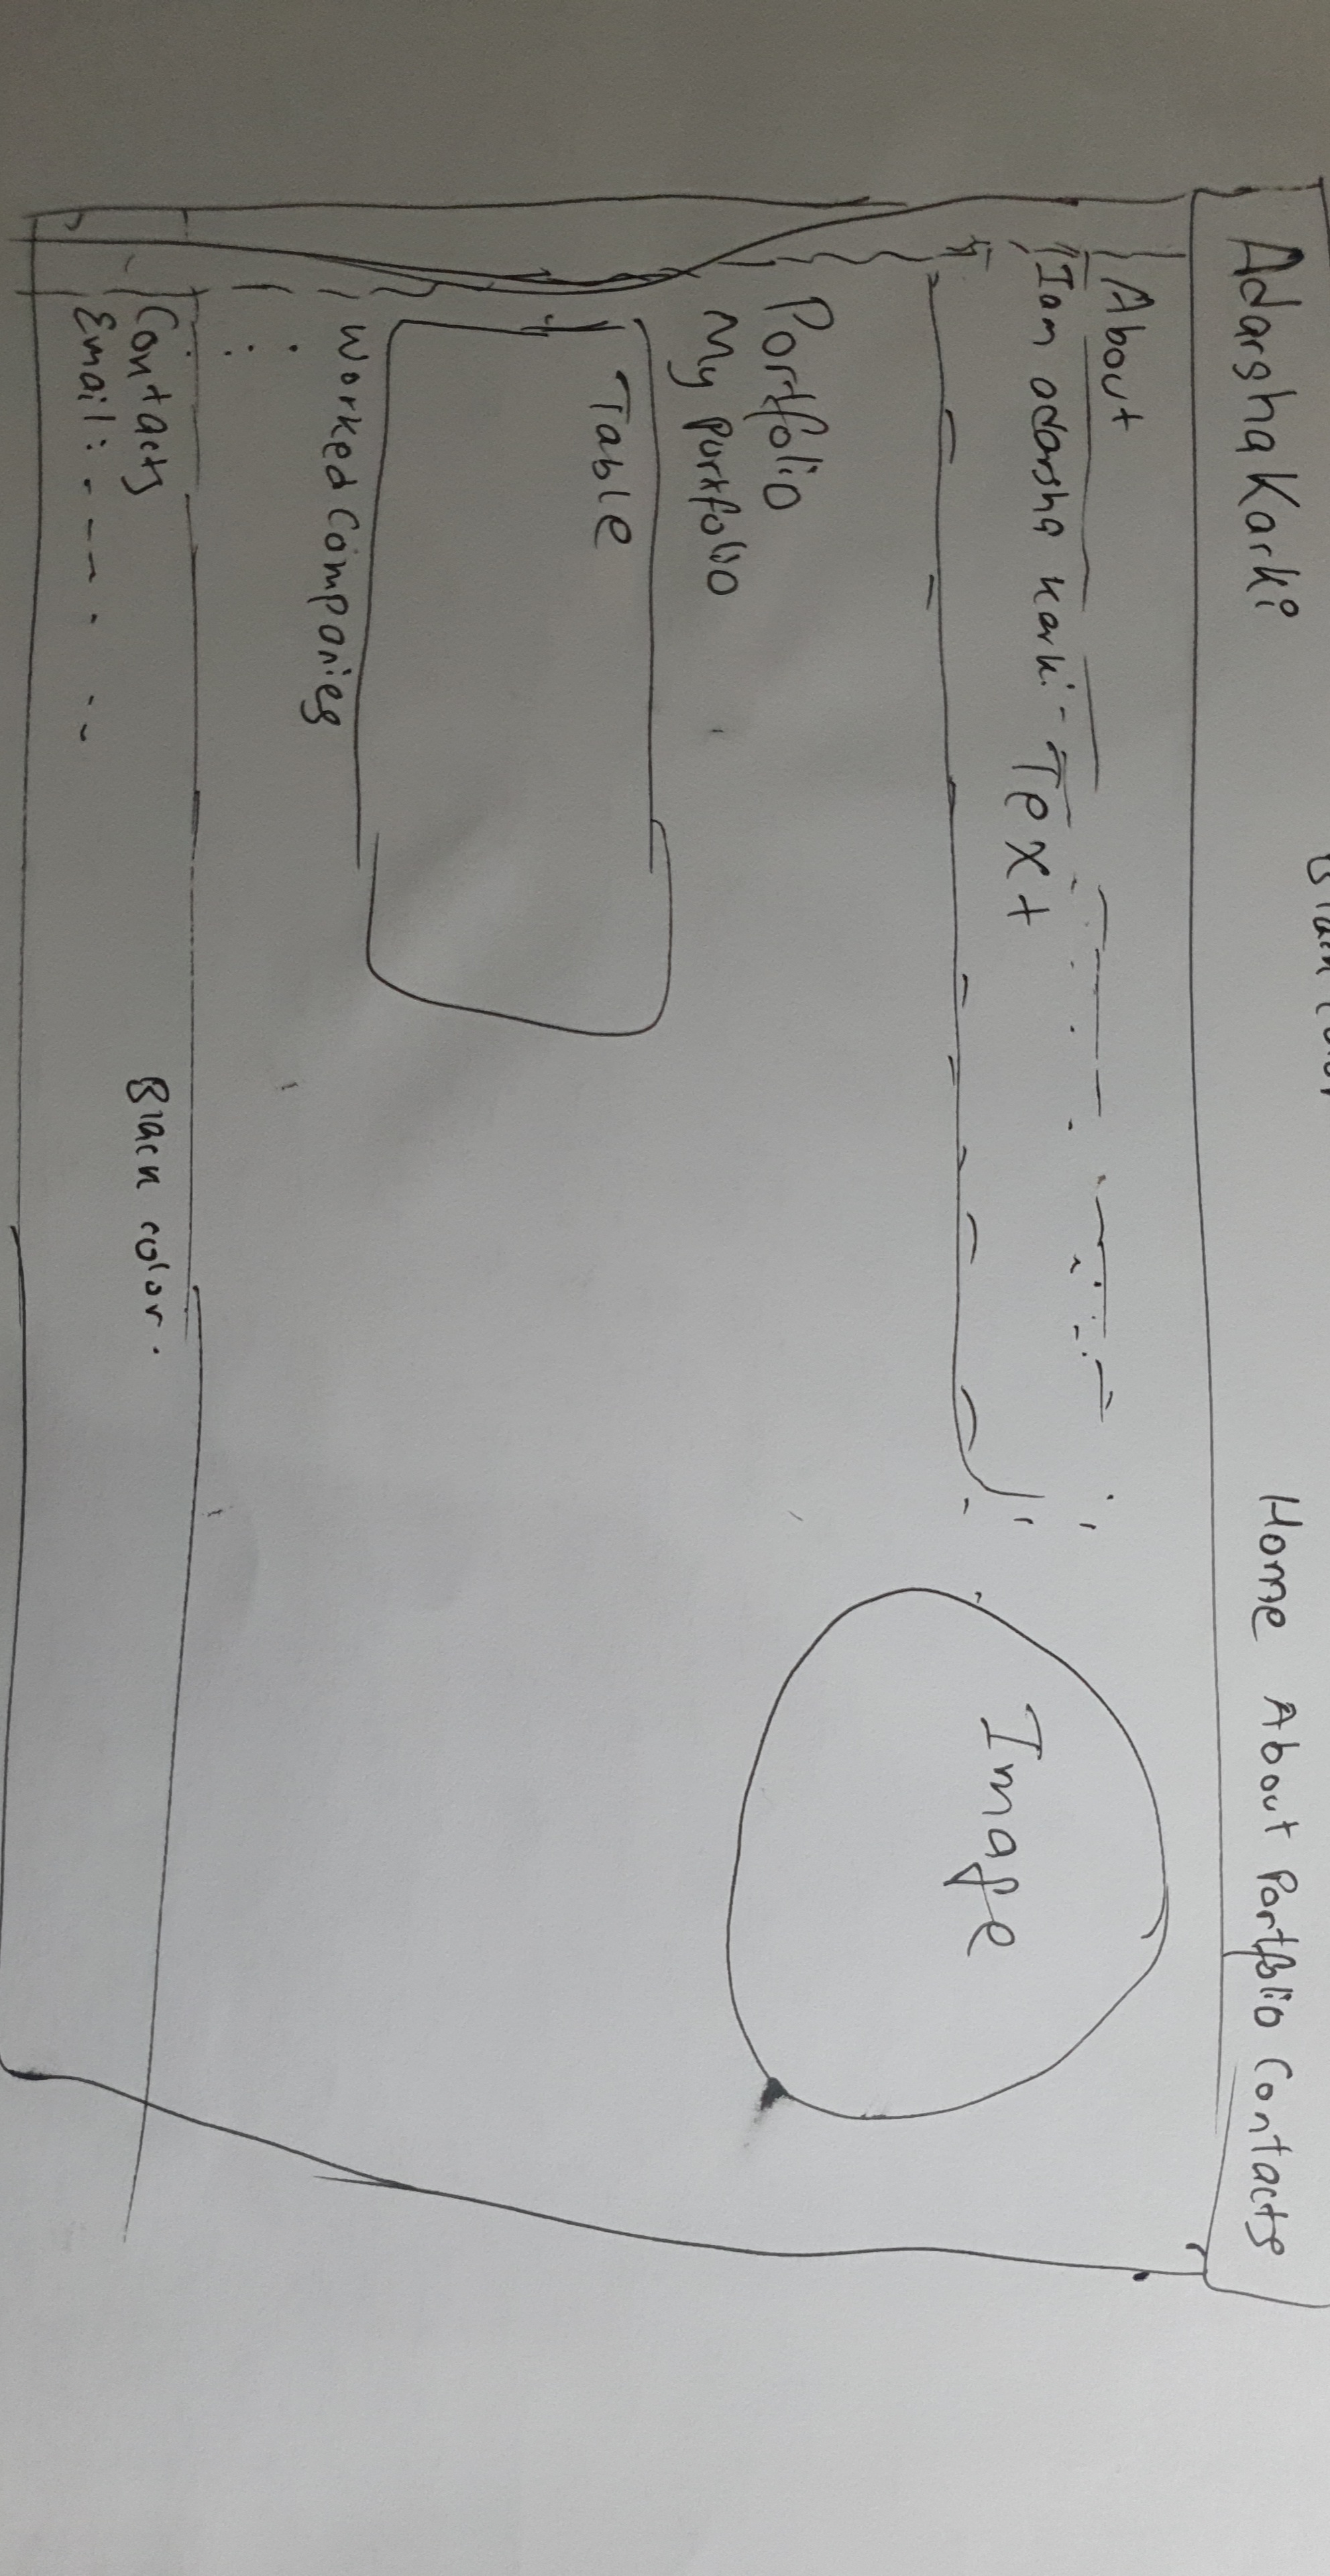 Adarsha Karki Home About Portfolio Contacts
About
I am adarsha karki - Text
Image
Portfolio
My portfolio
Table
Worked Companies
Contacts
Email:
Black color.